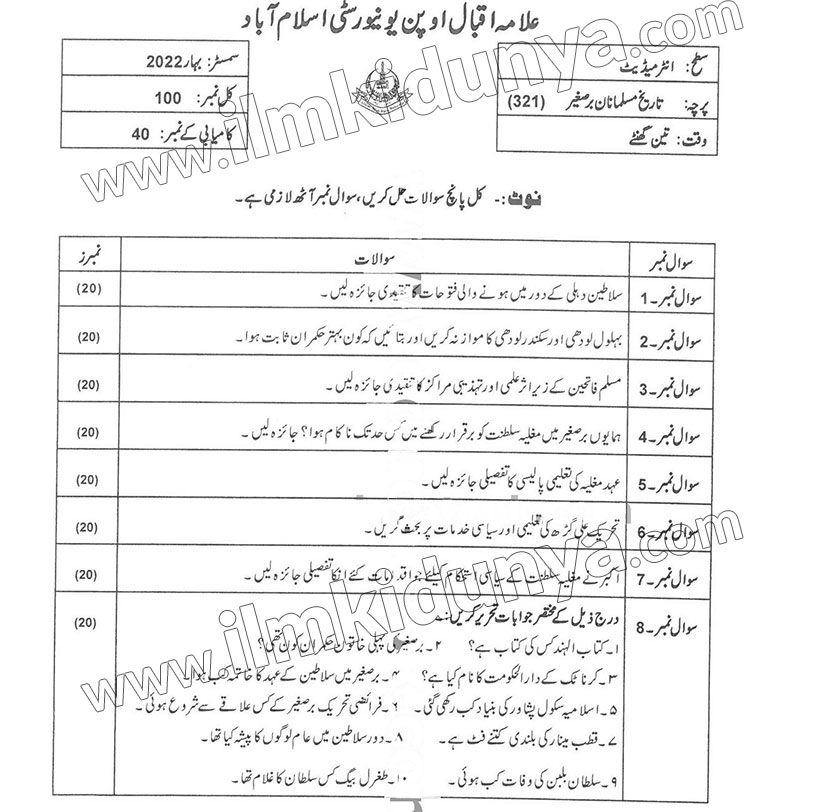 علامہ اقبال اوپن یونیورسٹی اسلام آباد
سطح: انٹرمیڈیٹ
پرچہ: تاریخ مسلمانان برصغیر (321)
وقت: تین گھنٹے
سمسٹر: بہار 2022
کل نمبر: 100
کامیابی کے نمبر: 40
نوٹ:- کل پانچ سوالات حل کریں، سوال نمبر آٹھ لازمی ہے۔
سوال نمبر سوالات نمبرز
سوال نمبر۔1 سلاطین دہلی کے دور میں ہونے والی فتوحات کا تنقیدی جائزہ لیں۔ (20)
سوال نمبر۔2 بہلول لودھی اور سکندر لودھی کا موازنہ کریں اور بتائیں کہ کون بہتر حکمران ثابت ہوا۔ (20)
سوال نمبر۔3 مسلم فاتحین کے زیر اثر علمی اور تہذیبی مراکز کا تنقیدی جائزہ لیں۔ (20)
سوال نمبر۔4 ہمایوں برصغیر میں مغلیہ سلطنت کو برقرار رکھنے میں کس حد تک ناکام ہوا؟ جائزہ لیں۔ (20)
سوال نمبر۔5 عہد مغلیہ کی تعلیمی پالیسی کا تفصیلی جائزہ لیں۔ (20)
سوال نمبر۔6 تحریک علی گڑھ کی تعلیمی اور سیاسی خدمات پر بحث کریں۔ (20)
سوال نمبر۔7 اکبر نے مغلیہ سلطنت کے سیاسی استحکام کیلئے جو اقدامات کئے انکا تفصیلی جائزہ لیں۔ (20)
سوال نمبر۔8 درج ذیل کے مختصر جوابات تحریر کریں۔ (20)
۱۔ کتاب الہند کس کی کتاب ہے؟ ۲۔ برصغیر کی پہلی خاتون حکمران کون تھی؟
۳۔ کرناٹک کے دارالحکومت کا نام کیا ہے؟ ۴۔ برصغیر میں سلاطین کے عہد کا خاتمہ کب ہوا۔
۵۔ اسلامیہ سکول پشاور کی بنیاد کب رکھی گئی۔ ۶۔ فرائضی تحریک برصغیر کے کس علاقے سے شروع ہوئی۔
۷۔ قطب مینار کی بلندی کتنے فٹ ہے۔ ۸۔ دور سلاطین میں عام لوگوں کا پیشہ کیا تھا۔
۹۔ سلطان بلبن کی وفات کب ہوئی۔ ۱۰۔ طغرل بیگ کس سلطان کا غلام تھا۔
www.ilmkidunya.com
www.ilmkidunya.com